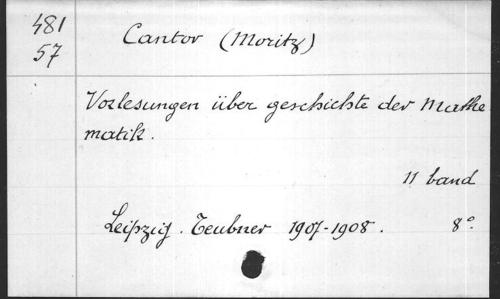 481
57
Cantor (Moritz)
Vozlesungen über geschichte der Mathe
matik.
11 band
Leipzig. Teubner 1907-1908. 8°.